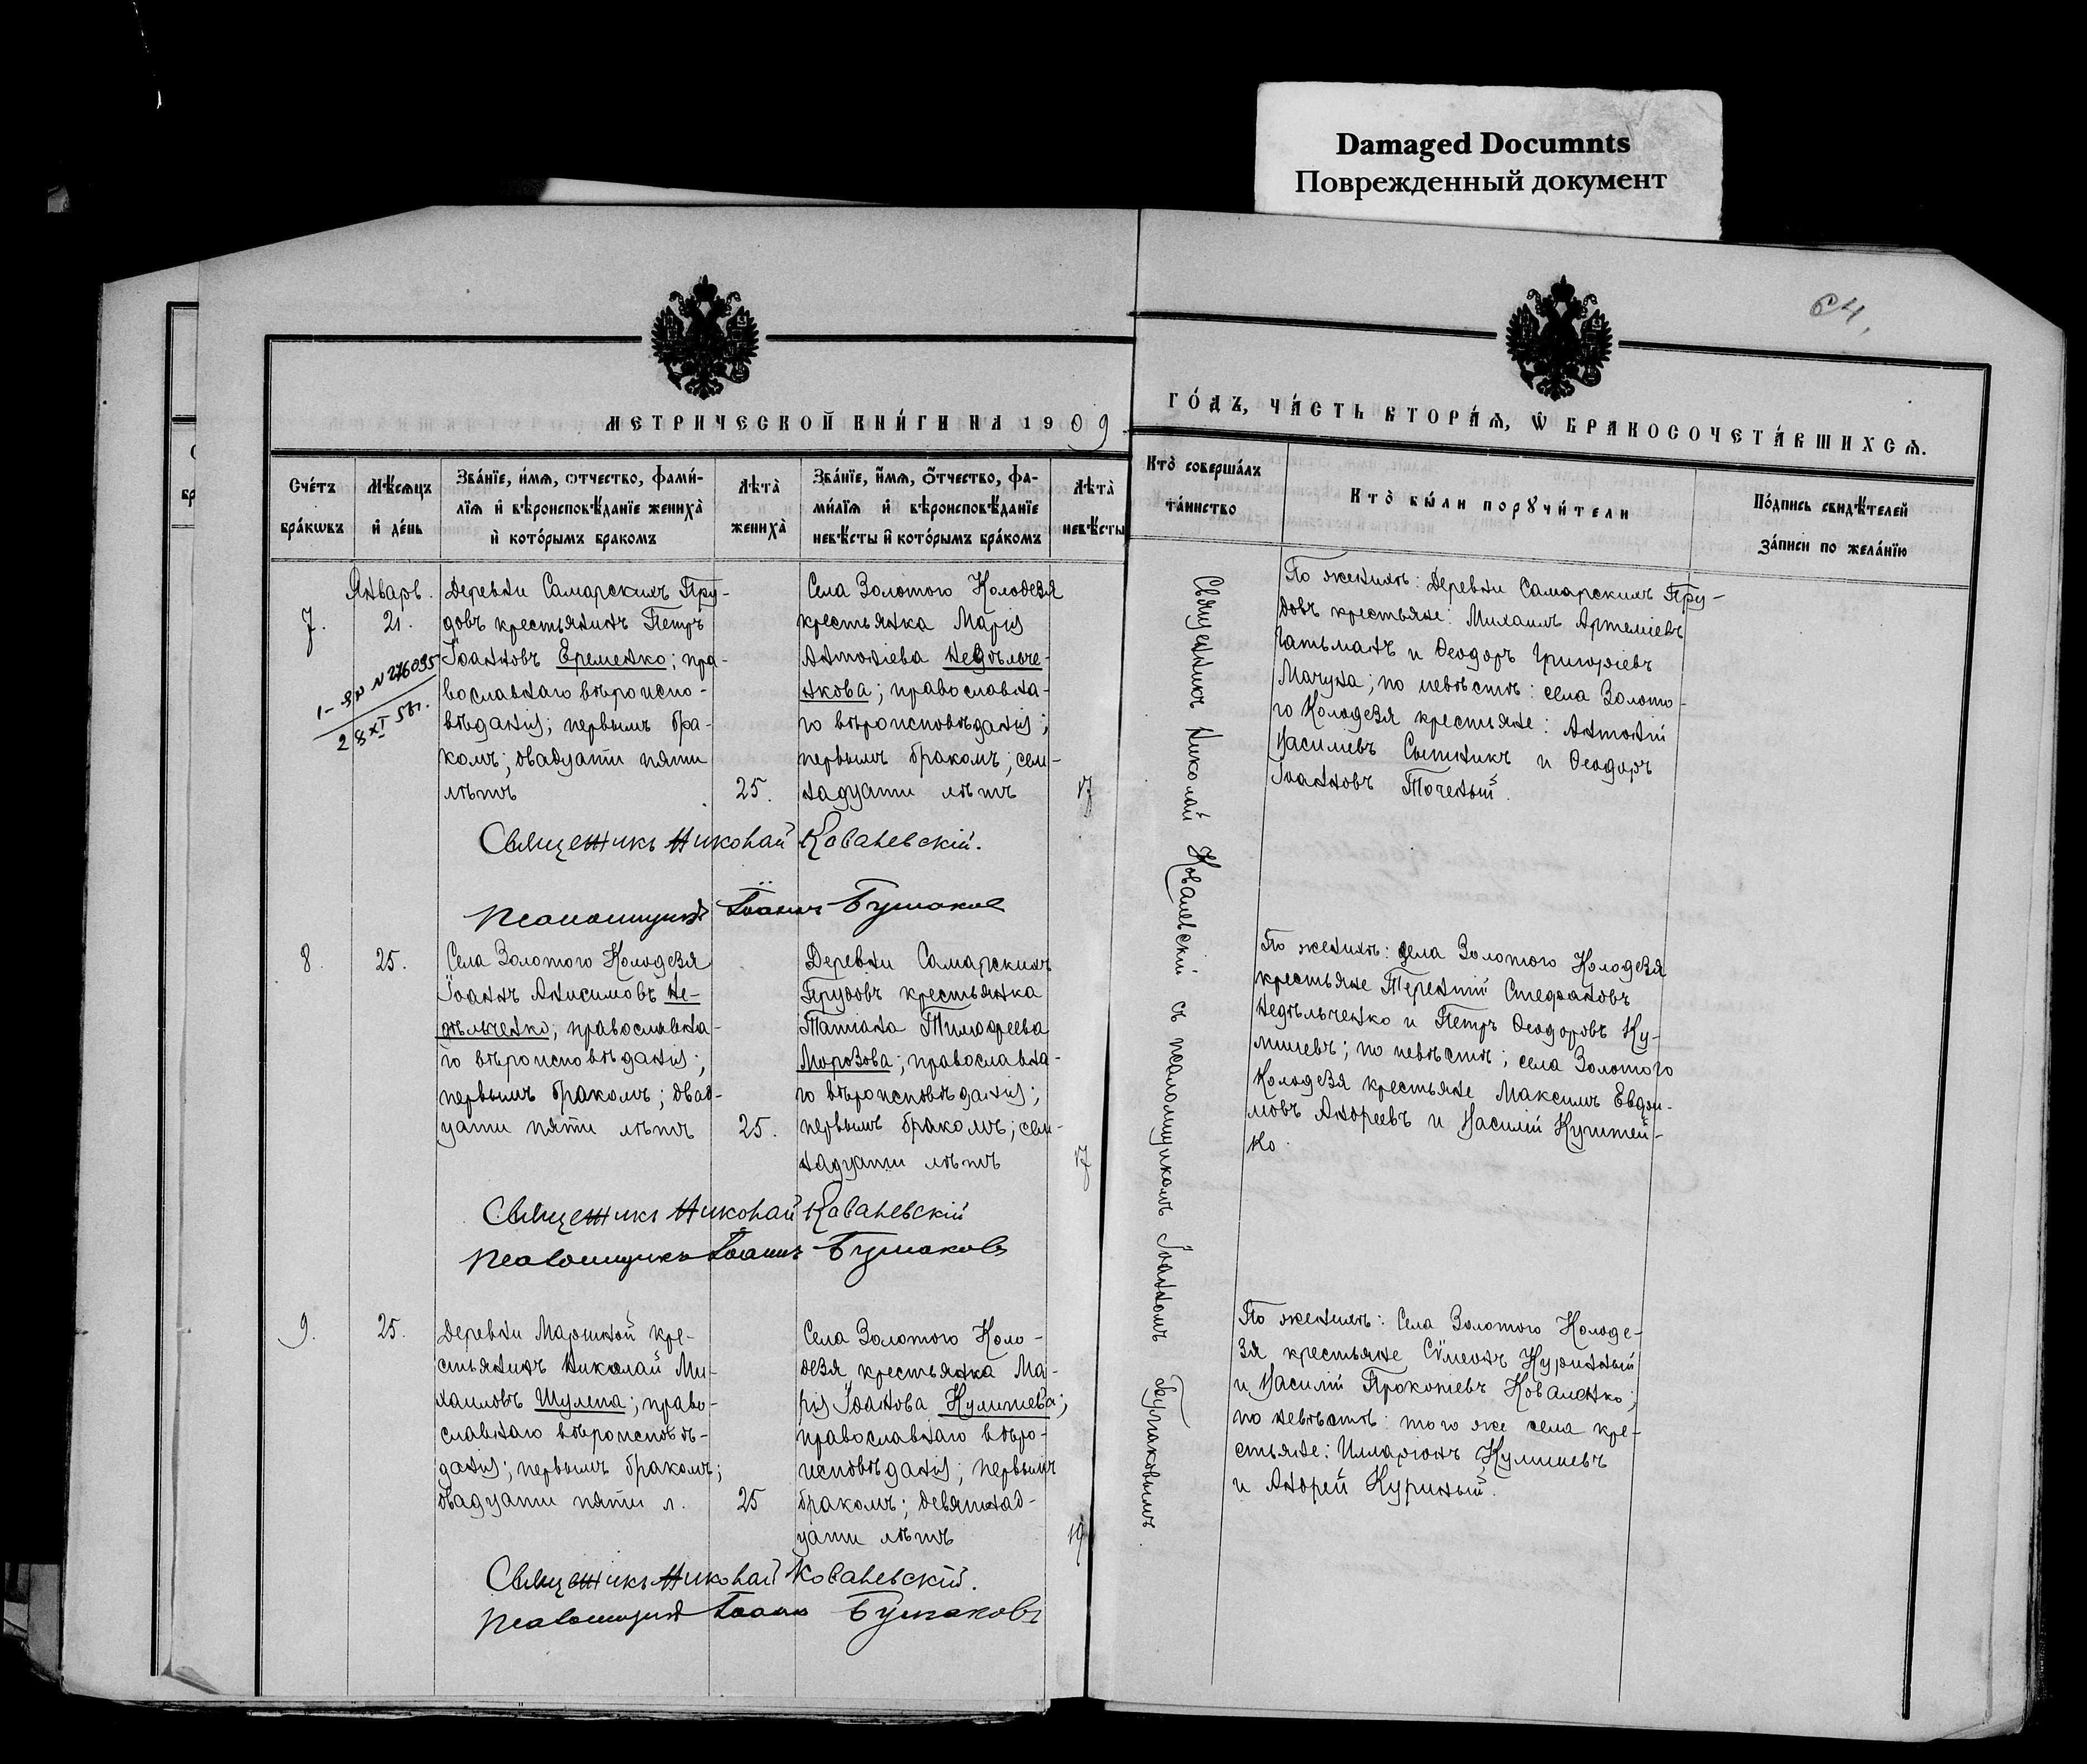 Damaged Documnts
Поврежденный документ
64,
МЕТРИЧЕСКОЙ КНИ́ГИ НА 1909
ГО́ДЪ, ЧА́СТЬ ВТОРА́Ѧ, Ѡ҆ БРАКОСОЧЕТА́ВШИХСѦ.
Сче́тъ
бра́кѡвъ
Мѣ́сѧцъ
и҆ де́нь
Зва́нїе, и҆́мѧ, ѻтчество, фами́-
лїѧ и҆ вѣроисповѣ́данїе жениха̀
и҆ кото́рымъ бракомъ
Лѣта̀
жениха̀
Зва́нїе, и҆́мѧ, ѻ҆́тчество, фа-
ми́лїѧ и҆ вѣроисповѣ́данїе
невѣ́сты и҆ кото́рымъ бра́комъ
Лѣта̀
невѣ́сты
Кто̀ соверша́лъ
та́инство
Кто̀ бы́ли порꙋчи́тели
По́дпись свидѣ́телей
за́писи по жела́нїю
7.
Январь.
21.
1-ЯЮ N 276095
28 XI 56г.
Деревни Самарскихъ Пру-
довъ крестьянинъ Петръ
Іоанновъ Еременко; пра-
вославнаго вѣроиспо-
вѣданія; первымъ бра-
комъ; двадцати пяти
лѣтъ
25.
Села Золотого Колодезя
крестьянка Марія
Антоніева Недѣльче-
нкова; православна-
го вѣроисповѣданія;
первымъ бракомъ; сем-
надцати лѣтъ
17
Священникъ Николай Ковалевскій.
Псаломщикъ Іоаннъ Бутаковъ
По женихѣ: Деревни Самарскихъ Пру-
довъ крестьяне: Михаилъ Артеміевъ
Гатьманъ и Ѳеодоръ Григоріевъ
Мачула; по невѣстѣ: села Золото-
го Колодезя крестьяне: Антоній
Василіевъ Сытникъ и Ѳеодоръ
Іоанновъ Точеный.
Священникъ Николай Ковалевскій съ псаломщикомъ Іоанномъ Бутаковымъ
8.
25.
Села Золотого Колодезя
Іоаннъ Анисимовъ Не-
дѣльченко; православна-
го вѣроисповѣданія;
первымъ бракомъ; двад-
цати пяти лѣтъ
25.
Деревни Самарскихъ
Прудовъ крестьянка
Татіана Тимоѳеева
Морозова; православна-
го вѣроисповѣданія;
первымъ бракомъ; сем-
надцати лѣтъ
17
Священникъ Николай Ковалевскій
Псаломщикъ Іоаннъ Бутаковъ
По женихѣ: села Золотого Колодезя
крестьяне Терентій Стефановъ
Недѣльченко и Петръ Ѳеодоровъ Ку-
лишевъ; по невѣстѣ; села Золотого
Колодезя крестьяне Максимъ Евдои-
мовъ Андреевъ и Василій
ко.
9.
25.
Деревни Маршной кре-
стьянинъ Николай Ми-
хаиловъ Шулепа; право-
славнаго вѣроисповѣ-
данія; первымъ бракомъ;
двадцати пяти л.
25
Села Золотого Коло-
дезя крестьянка Ма-
рія Іоанова Кулишева;
православнаго вѣро-
исповѣданія; первымъ
бракомъ; девятнад-
цати лѣтъ
19
Священникъ Николай Ковалевскій.
Псаломщикъ Іоаннъ Бутаковъ
По женихѣ: Села Золотого Колоде-
зя крестьяне Сѵмеонъ Куринный
и Василій Прокопіевъ Коваленко;
по невѣстѣ: того же села кре-
стьяне: Илларіонъ Кулишевъ
и Андрей Куриный.